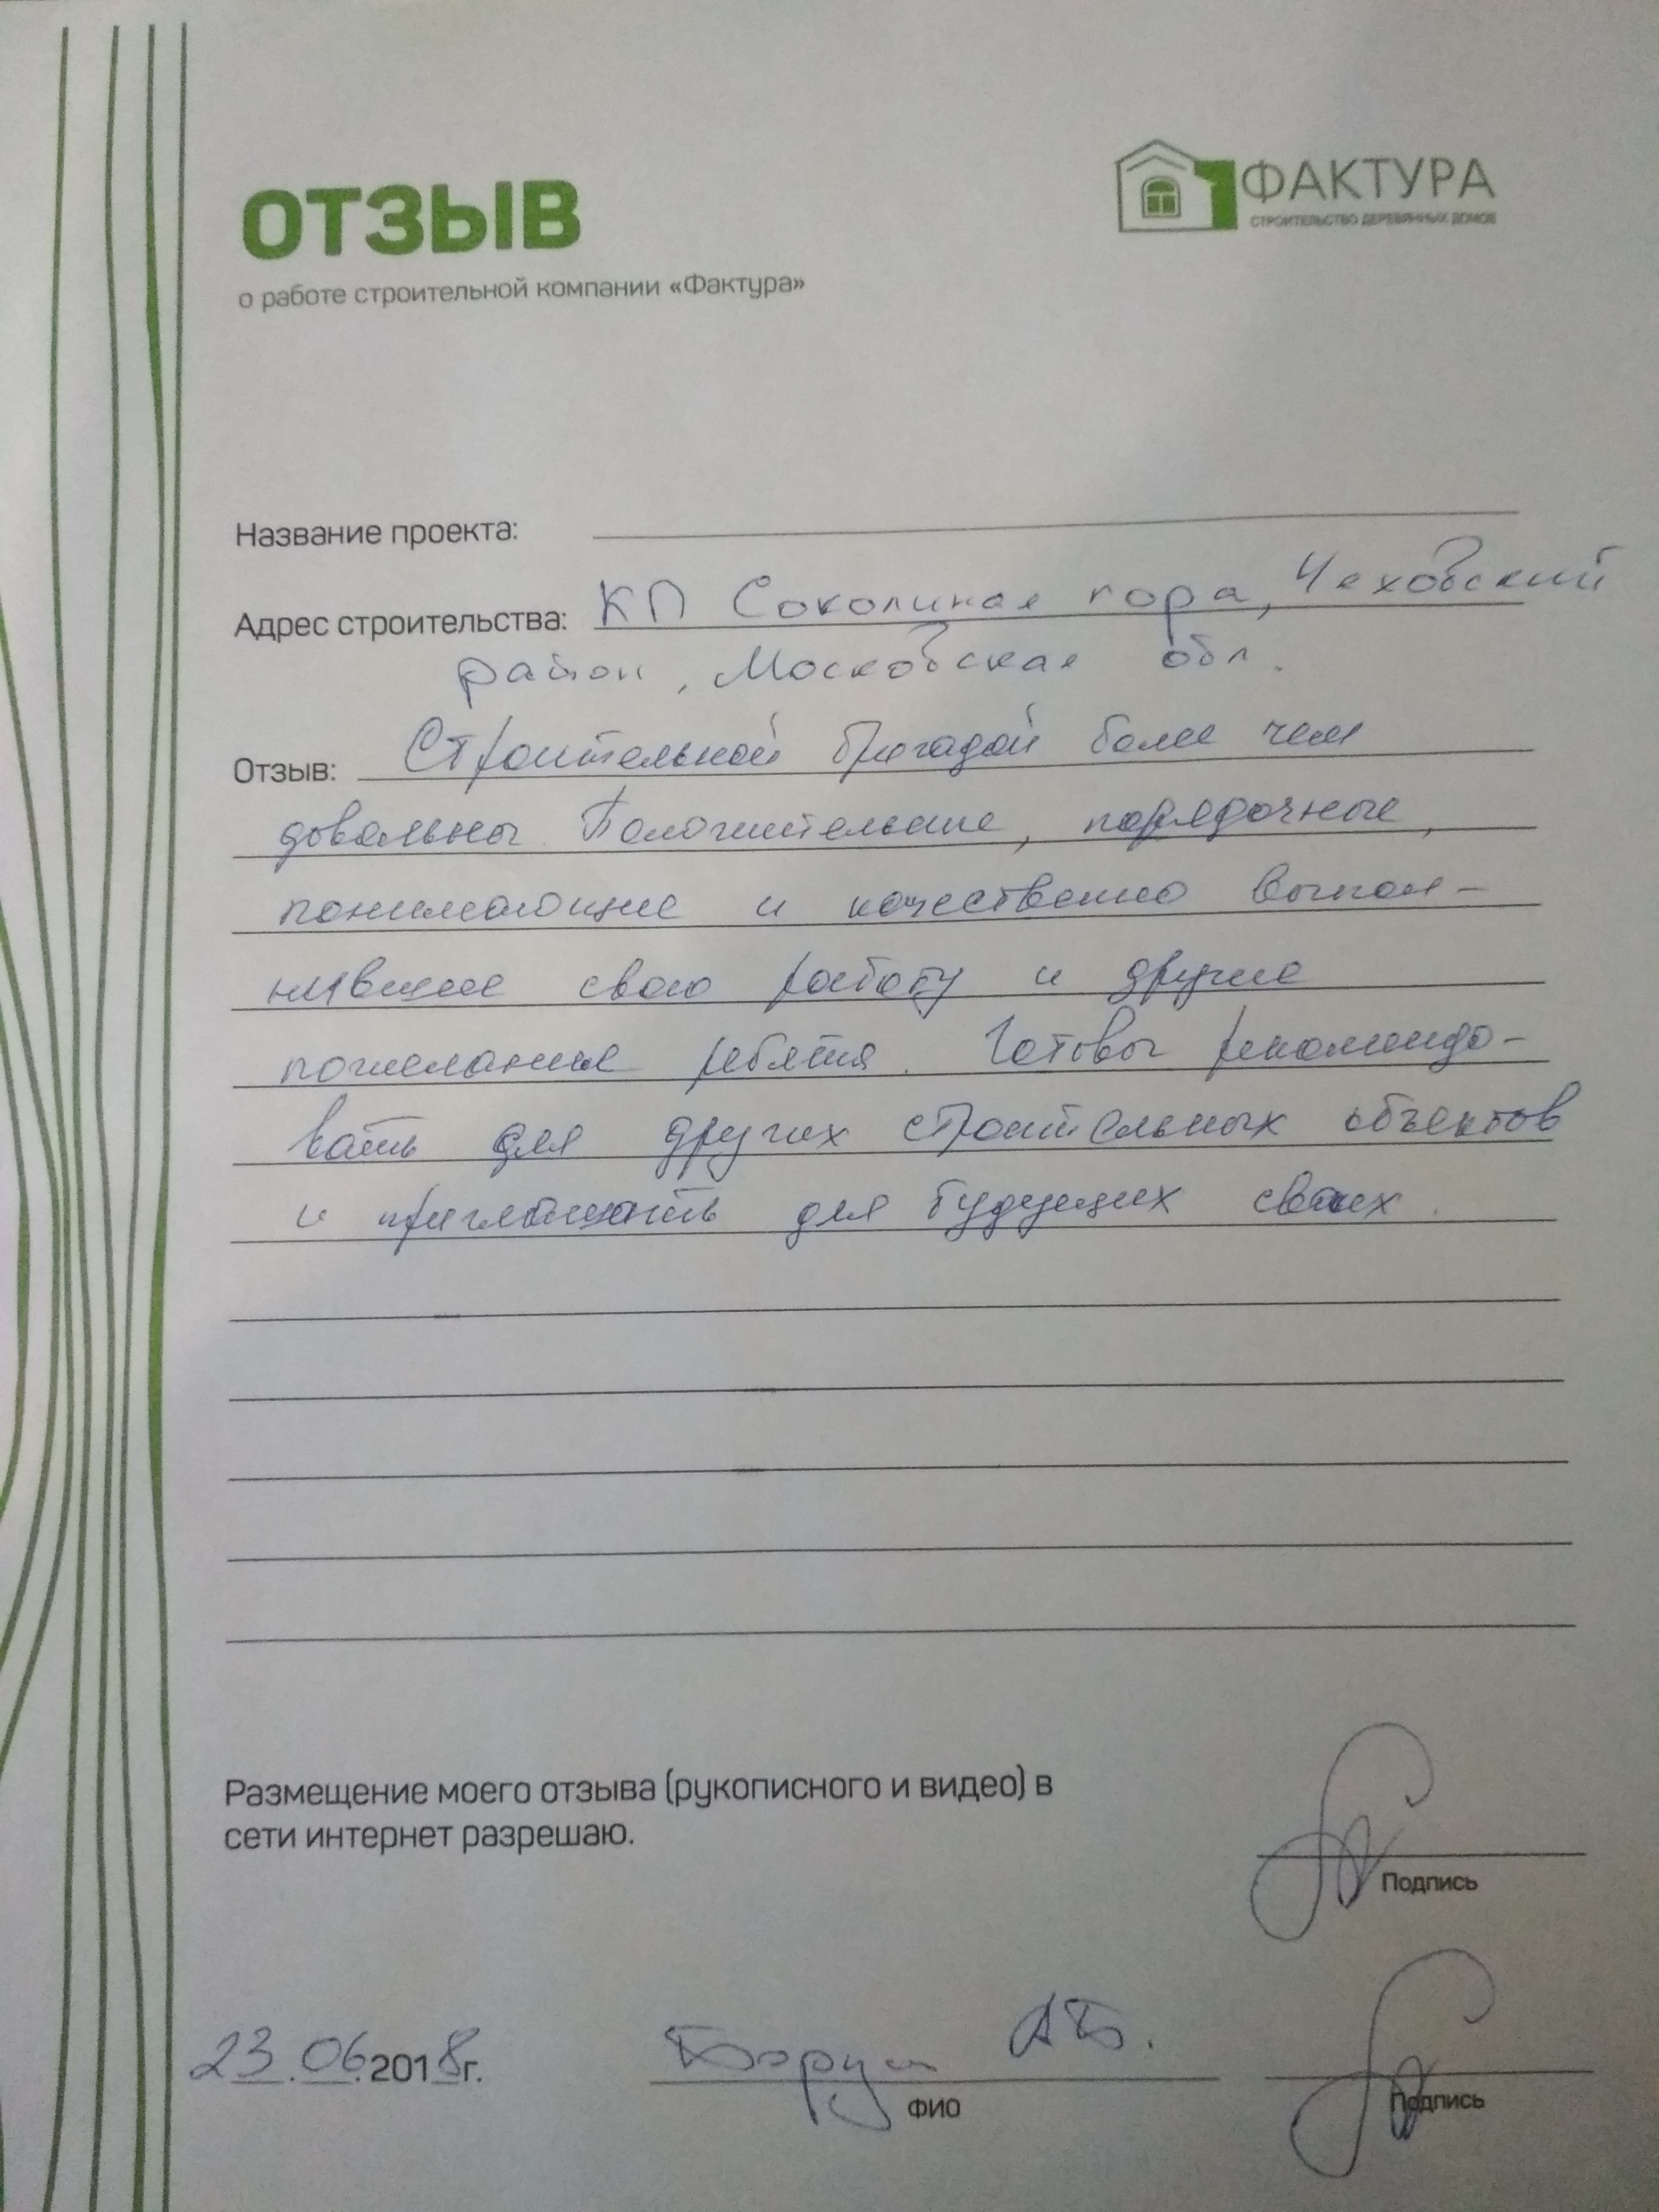 ОТЗЫВ
о работе строительной компании «Фактура»
ФАКТУРА
СТРОИТЕЛЬСТВО ДЕРЕВЯННЫХ ДОМОВ
Название проекта:
Адрес строительства: КП Соколиная гора, Чеховский
район, Московская обл.
Отзыв: Строительной бригадой более чем
довольны. Положительные, порядочные,
понимающие и качественно выпол-
нившие свою работу и другие
пожелания ребята. Готовы рекомендо-
вать для других строительных объектов
и приглашать для будущих своих.
Размещение моего отзыва (рукописного и видео) в
сети интернет разрешаю.
Подпись
23.06.2018г.
А.Б.
ФИО
Подпись